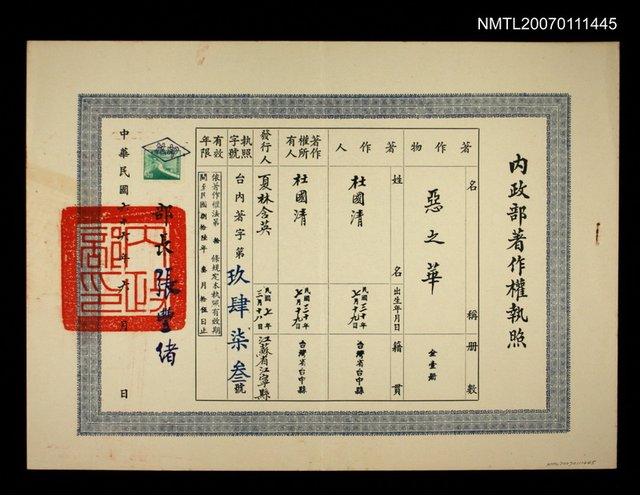 NMTL20070111445
內政部著作權執照
著作物
名稱
冊數
惡之華
全壹冊
著作人
姓名
出生年月日
籍貫
杜國清
民國三十年七月十九日
台灣省台中縣
著作權所有人
杜國清
民國三十年七月十九日
台灣省台中縣
發行人
夏林含英
民國七年三月十八日
江蘇省江寧縣
執照字號
台內著字第玖肆柒叁號
有效年限
依著作權法第拾條規定本執照有效期
間至民國捌拾陸年叁月拾伍日止
部長張豐緒
中華民國
年
月
日
NMTL20070111445